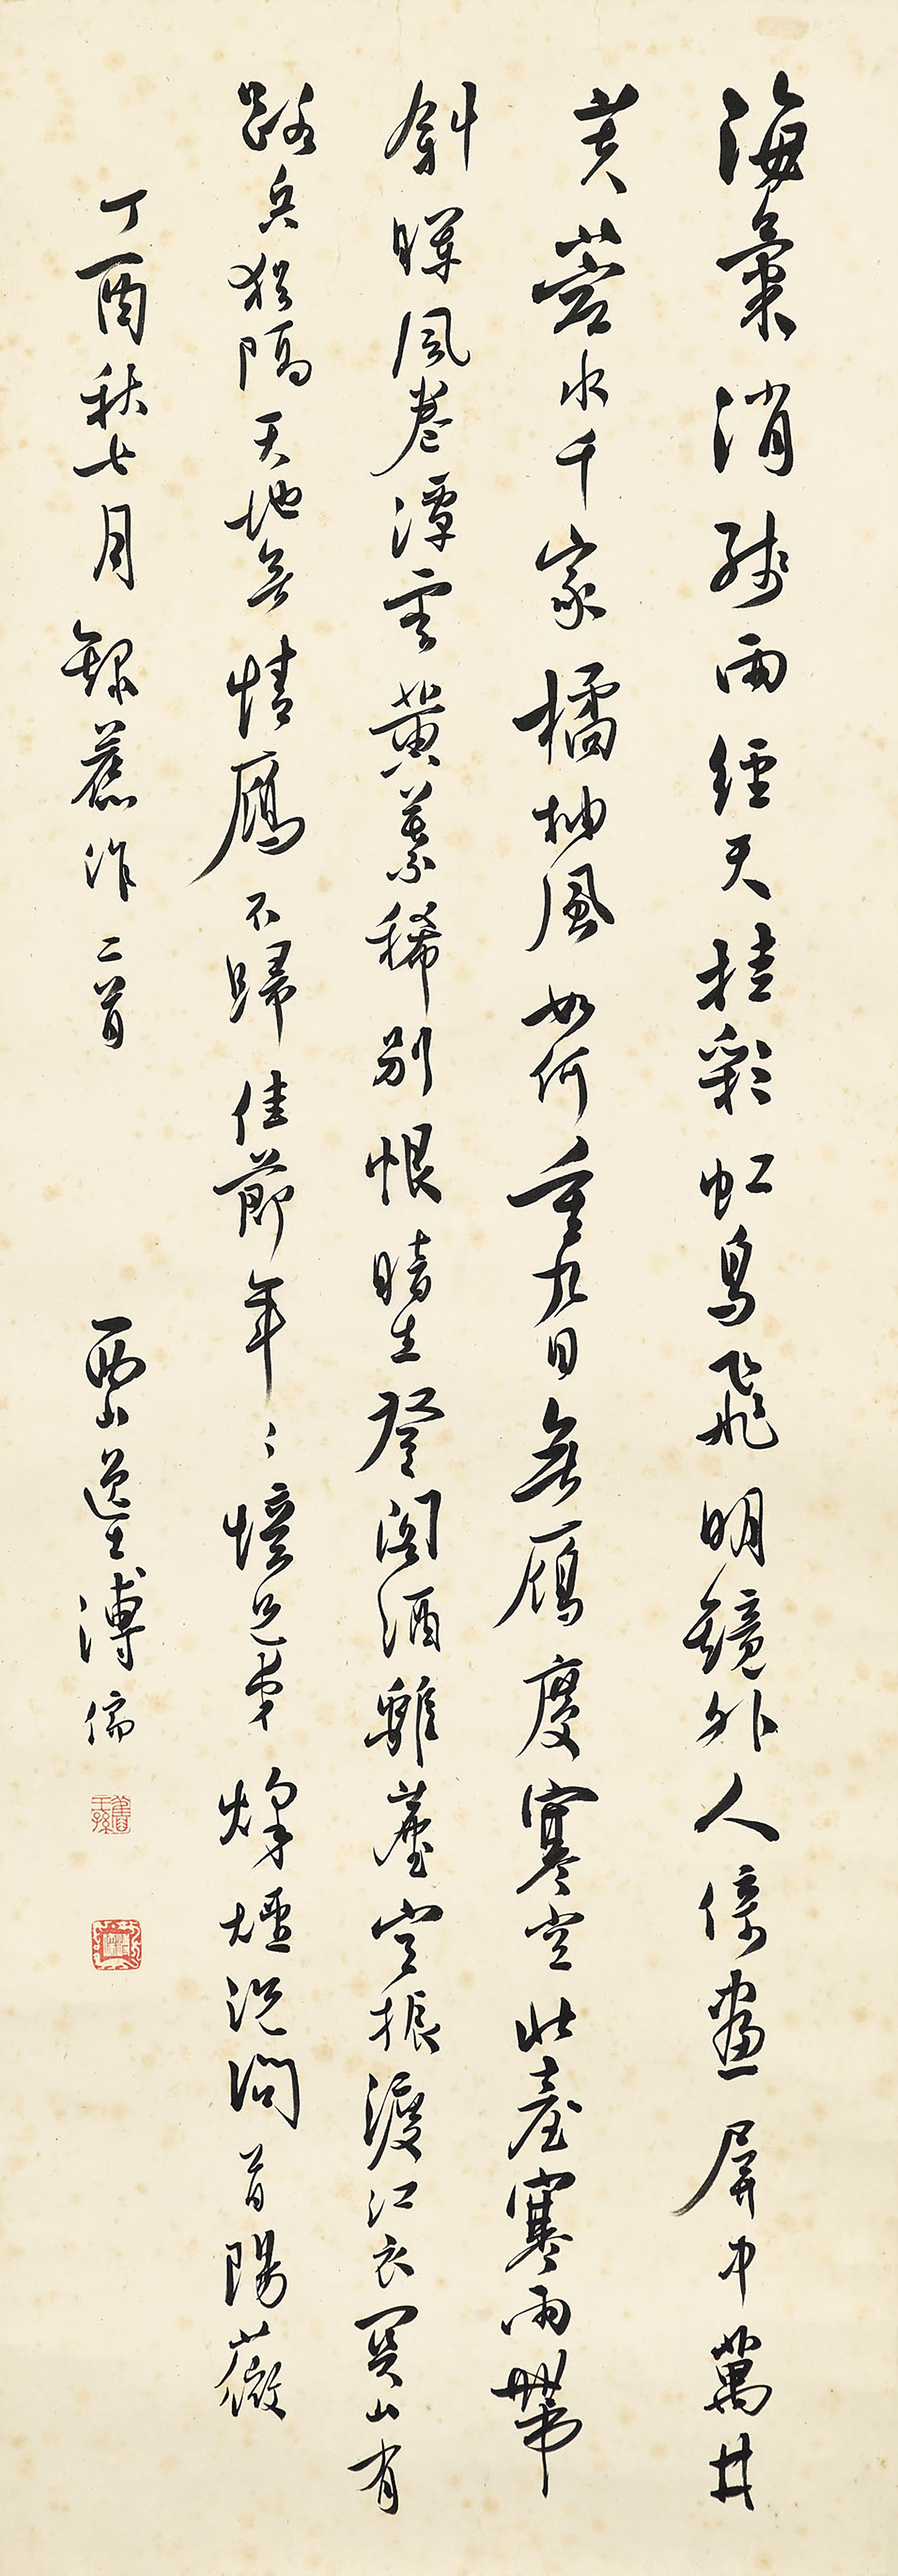 海氣消殘雨經天挂彩虹鳥飛明鏡外人倚畫屏中萬井
芙蓉水千家橘柚風如何重九日無鴈度寒空北臺寒雨帶
斜暉風卷潭雲黃葉稀別恨暗生登閣酒離塵空振渡江衣關山有
路兵猶隔天地無情鴈不歸佳節年〻憶兄弟烽煙況問首陽薇
丁酉秋七月錄舊作二首 西山逸士溥儒
舊王孫